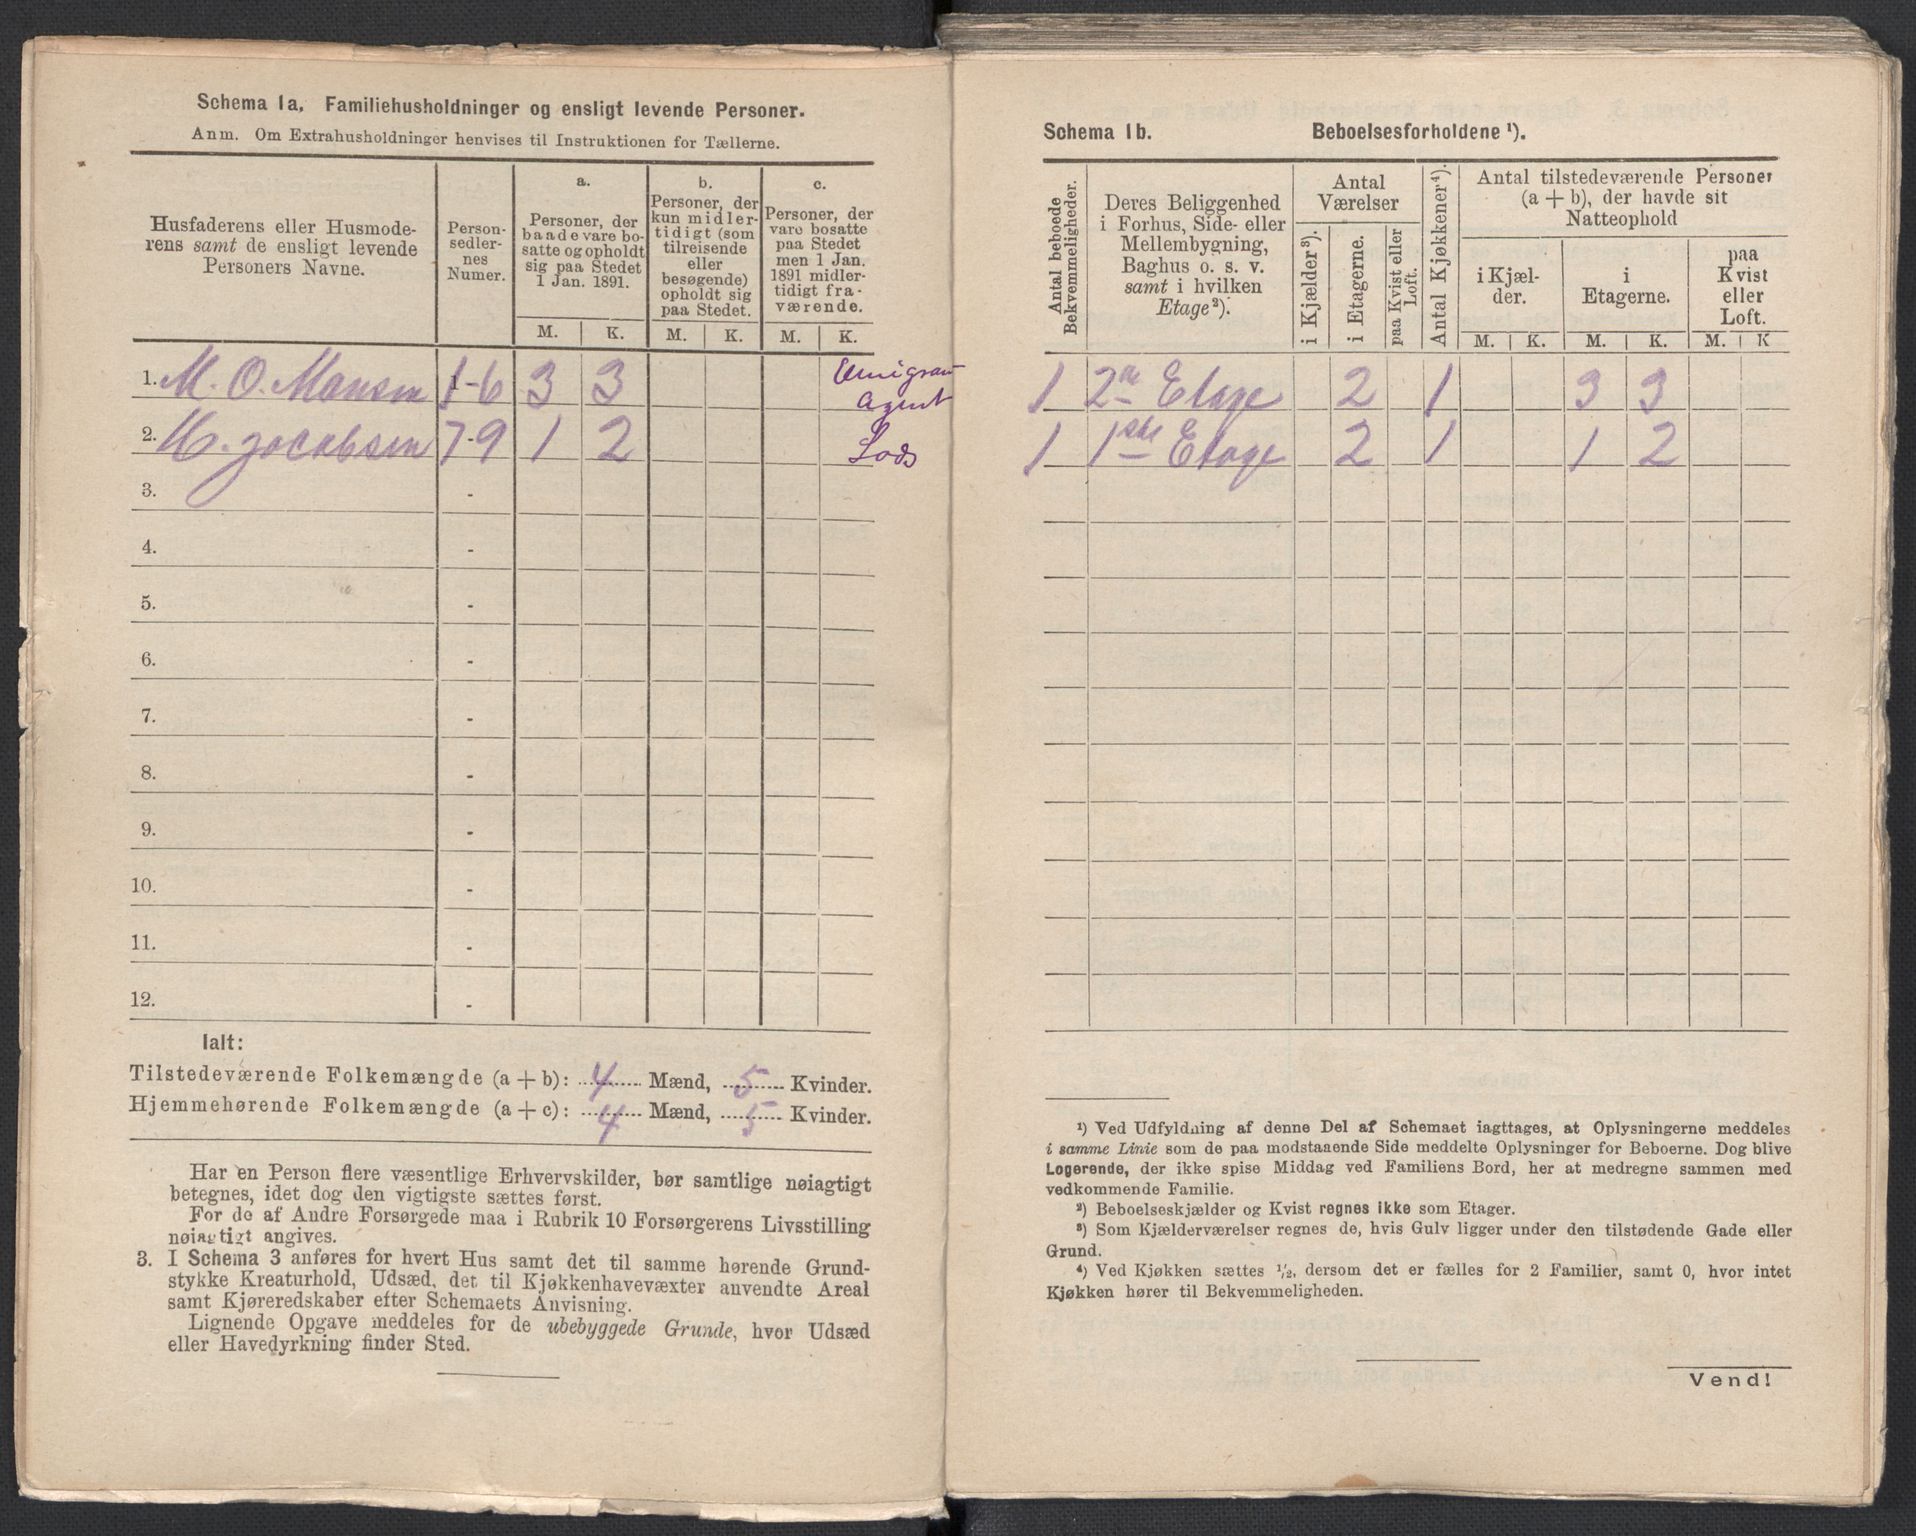 Schema 1a. Familiehusholdninger og ensligt levende Personer.
Anm. Om Extrahusholdninger henvises til Instruktionen for Tællerne.
Husfaderens eller Husmode-
rens samt de ensligt levende
Personers Navne.
Person-
sedler-
nes
Numer.
a.
Personer, der
baade vare bo-
satte og opholdt
sig paa Stedet
1 Jan. 1891.
b.
Personer, der
kun midler-
tidigt (som
tilreisende
eller
besøgende)
opholdt sig
paa Stedet.
c.
Personer, der
vare bosatte
paa Stedet
men 1 Jan.
1891 midler-
tidigt fra-
værende.
M. K. M. K. M. K.
1. M. O. Monsen 1-6 3 3 Emigrant
Agent
2. H. Jacobsen 7-9 1 2 Lods
3. -
4. -
5. -
6. -
7. -
8. -
9. -
10. -
11. -
12. -
Ialt:
Tilstedeværende Folkemængde (a + b): 4 Mænd, 5 Kvinder.
Hjemmehørende Folkemængde (a + c): 4 Mænd, 5 Kvinder.
Har en Person flere væsentlige Erhvervskilder, bør samtlige nøiagtigt
betegnes, idet dog den vigtigste sættes først.
For de af Andre Forsørgede maa i Rubrik 10 Forsørgerens Livsstilling
nøiagtigt angives.
3. I Schema 3 anføres for hvert Hus samt det til samme hørende Grund-
stykke Kreaturhold, Udsæd, det til Kjøkkenhavevæxter anvendte Areal
samt Kjøreredskaber efter Schemaets Anvisning.
Lignende Opgave meddeles for de ubebyggede Grunde, hvor Udsæd
eller Havedyrkning finder Sted.
Schema 1b. Beboelsesforholdene ¹).
Antal beboede
Bekvemmeligheder.
Deres Beliggenhed
i Forhus, Side- eller
Mellembygning,
Baghus o. s. v.
samt i hvilken
Etage ²).
Antal
Værelser
i Kjælder ³).
i Etagerne.
paa Kvist eller
Loft.
Antal Kjøkkener ⁴).
Antal tilstedeværende Personer
(a + b), der havde sit
Natteophold
i Kjæl-
der.
i
Etagerne.
paa
Kvist
eller
Loft.
M. K. M. K. M. K
1 2den Etage 2 1 3 3
1 1ste Etage 2 1 1 2
¹) Ved Udfyldning af denne Del af Schemaet iagttages, at Oplysningerne meddeles
i samme Linie som de paa modstaaende Side meddelte Oplysninger for Beboerne. Dog blive
Logerende, der ikke spise Middag ved Familiens Bord, her at medregne sammen med
vedkommende Familie.
²) Beboelseskjælder og Kvist regnes ikke som Etager.
³) Som Kjælderværelser regnes de, hvis Gulv ligger under den tilstødende Gade eller
Grund.
⁴) Ved Kjøkken sættes ½, dersom det er fælles for 2 Familier, samt 0, hvor intet
Kjøkken hører til Bekvemmeligheden.
Vend!